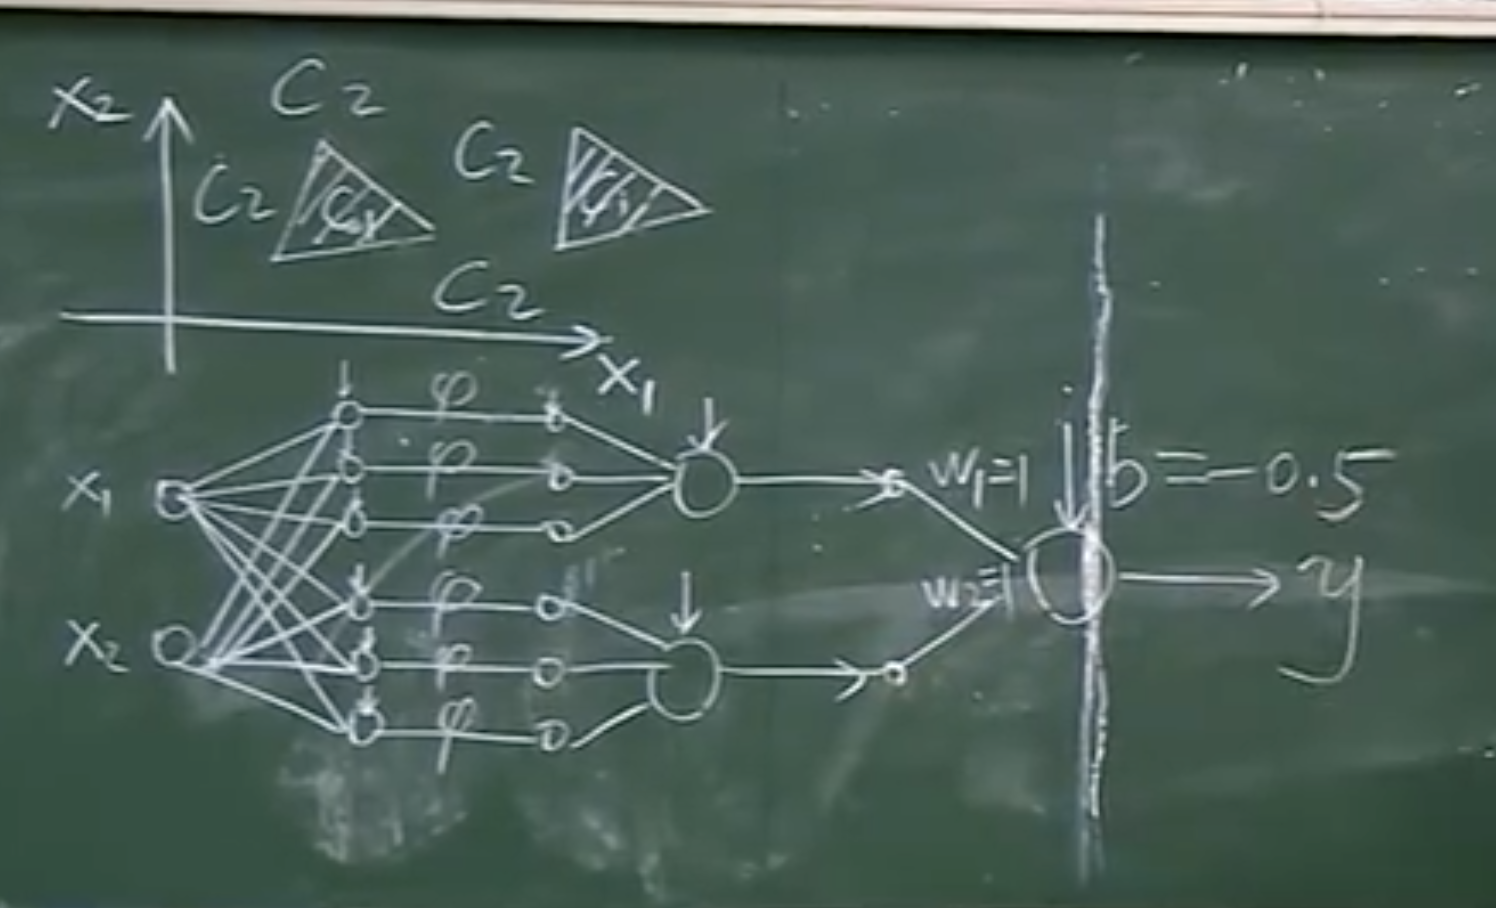 x₂
C₂
C₂
C₁
C₂
C₁
C₂
x₁
φ
φ
φ
φ
φ
φ
x₁
x₂
w₁=1
w₂=1
b=-0.5
y